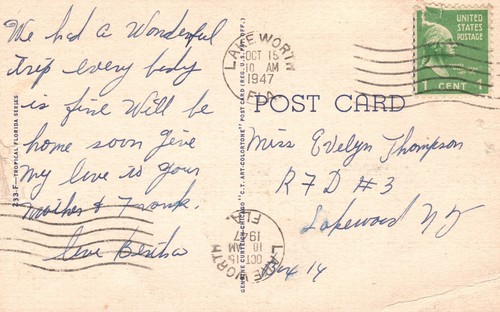 We had a Wonderful
trip every body
is fine Will be
home soon give
my love to your
mother & Frank.
love Bertha
233-F—TROPICAL FLORIDA SERIES
GENUINE CURTEICH-CHICAGO "C.T. ART-COLORTONE" POST CARD (REG. U.S. PAT. OFF.)
LAKE WORTH
OCT 15
10 AM
1947
FLA.
UNITED
STATES
POSTAGE
1 CENT 1
POST CARD
Miss Evelyn Thompson
RFD #3
Lakewood NJ
Box 14
LAKE WORTH
OCT 15
10 AM
1947
FLA.